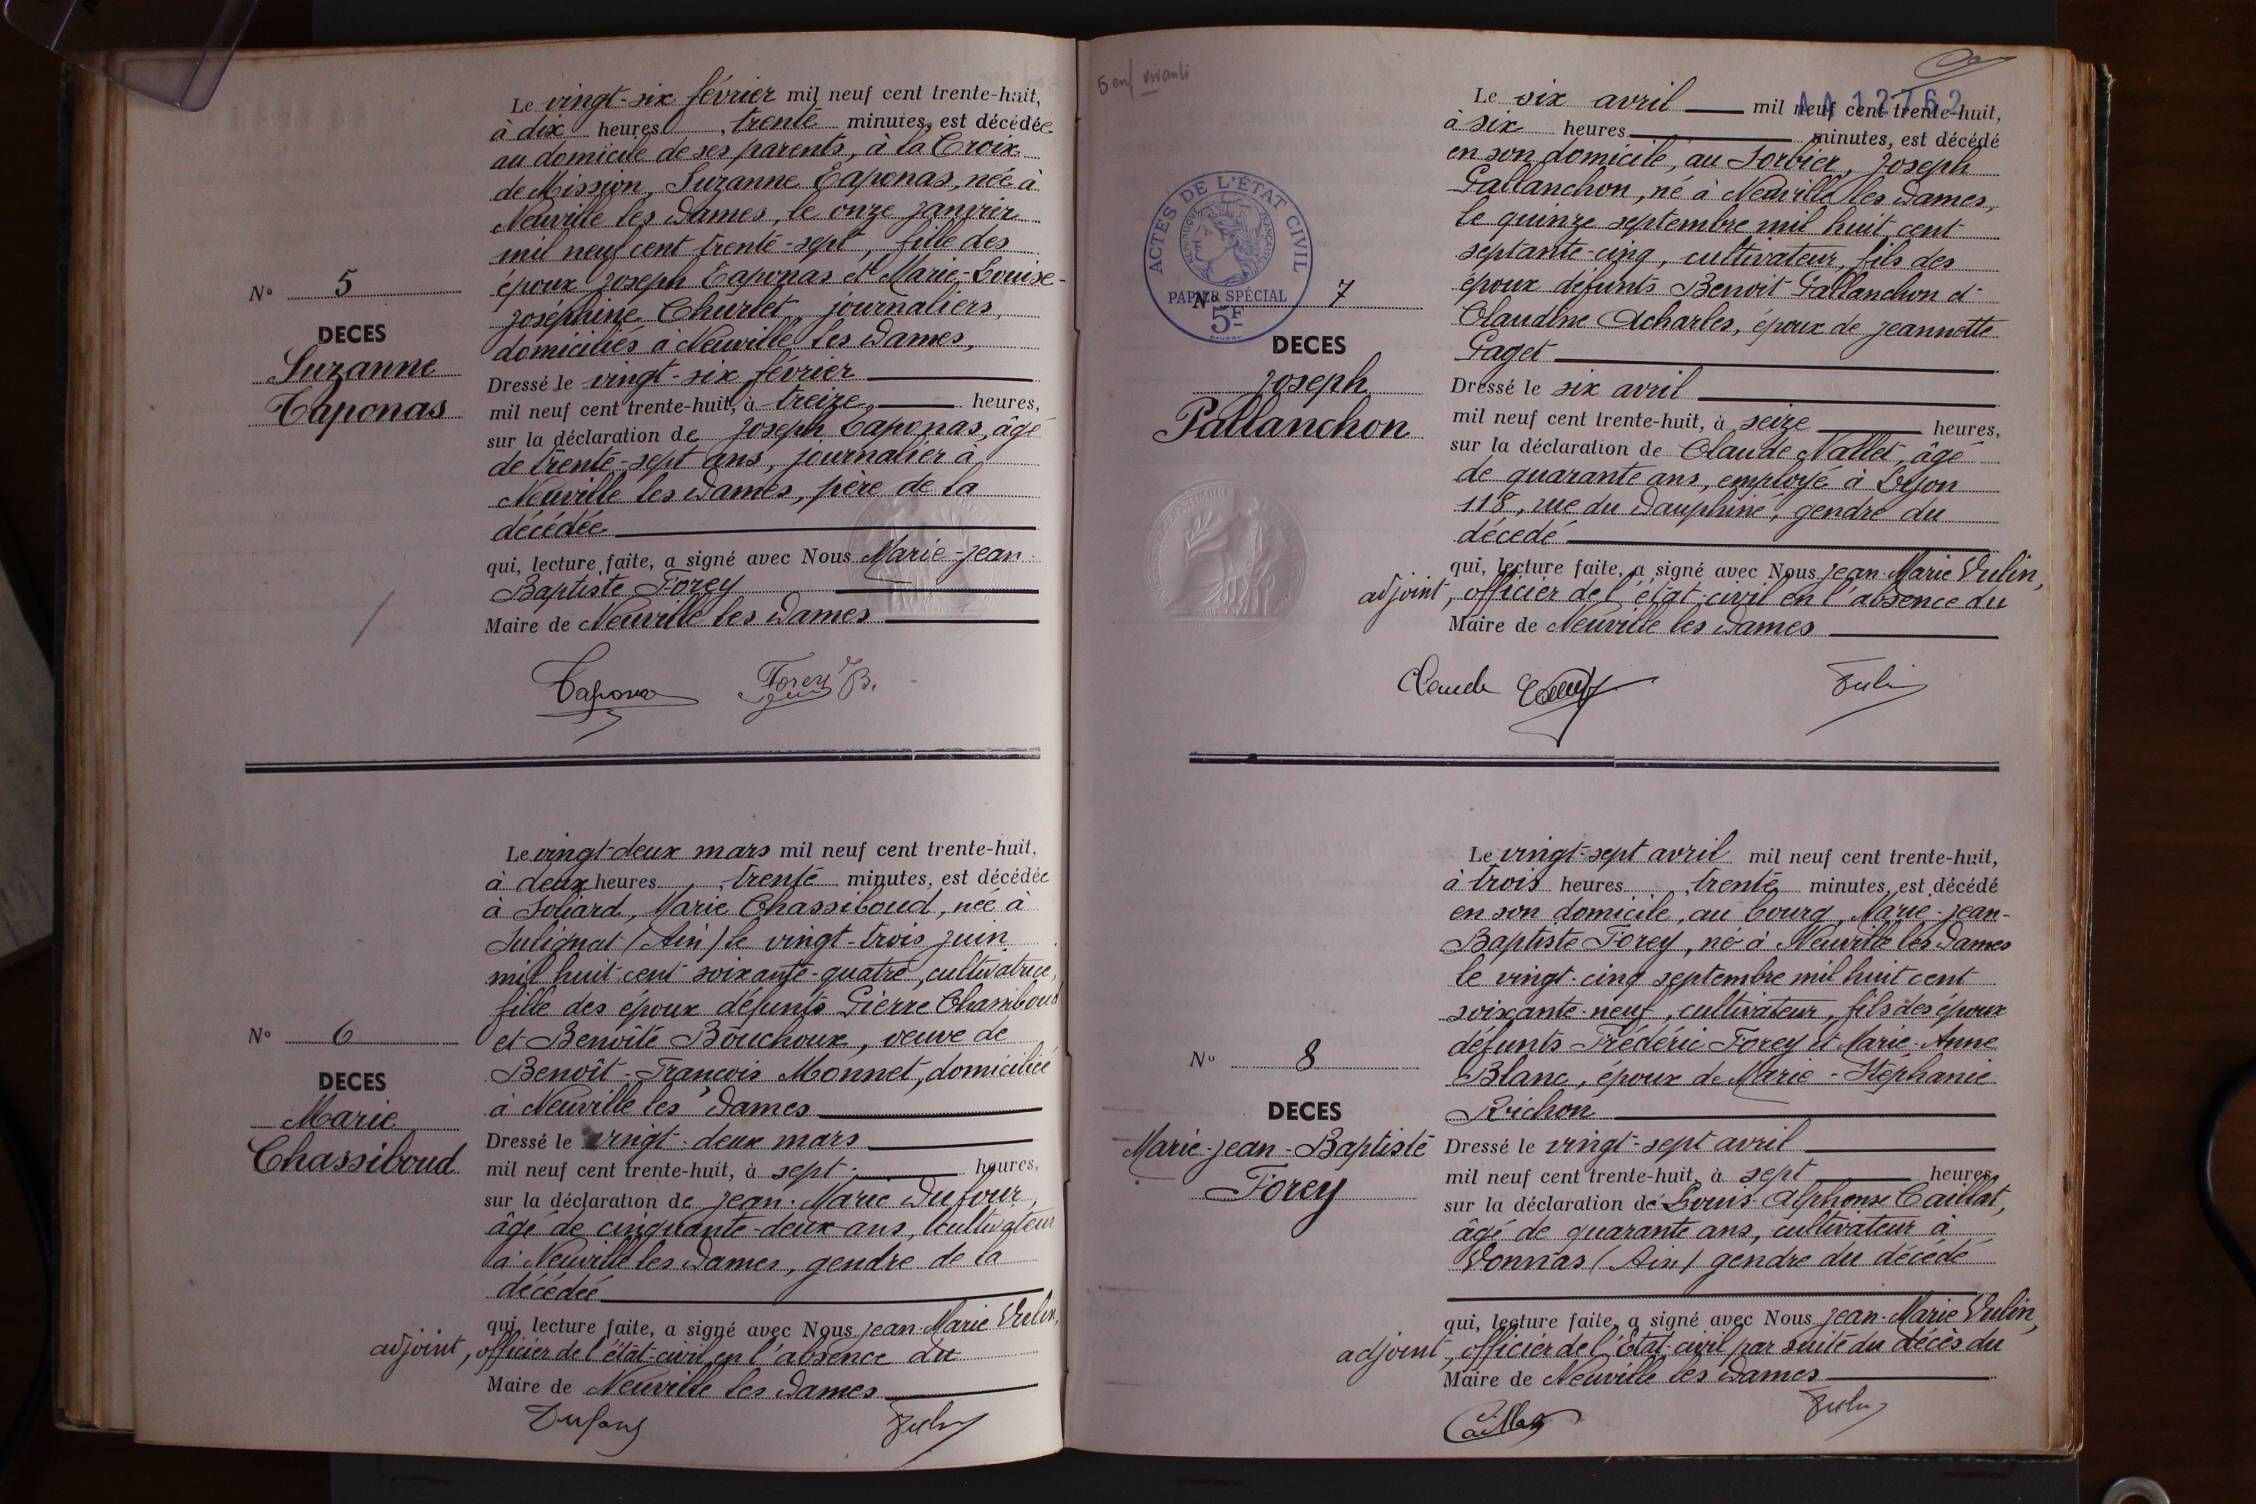 Le vingt-six février mil neuf cent trente-huit,
à dix heures trente minutes, est décédée
au domicile de ses parents, à la Croix
de Mission, Suzanne Taponas, née à
Neuville les Dames, le onze janvier
mil neuf cent trente-sept, fille des
époux Joseph Taponas et Marie-Louise-
Joséphine Churlet, journaliers,
domiciliés à Neuville les Dames,
N° 5
DECES
Suzanne
Taponas
Dressé le vingt-six février
mil neuf cent trente-huit, à treize heures,
sur la déclaration de Joseph Taponas, âgé
de trente-sept ans, journalier à
Neuville les Dames, père de la
décédée
qui, lecture faite, a signé avec Nous Marie-Jean
Baptiste Forey
Maire de Neuville les Dames
Taponas Forey J B.
Le vingt-deux mars mil neuf cent trente-huit,
à deux heures trente minutes, est décédée
à Soliard, Marie Chassiboud, née à
Sulignat (Ain) le vingt-trois juin
mil huit cent soixante-quatre, cultivatrice,
fille des époux défunts Pierre Chassiboud
et Benoîte Bouchoux, veuve de
Benoît-François Monnet, domiciliée
à Neuville les Dames
N° 6
DECES
Marie
Chassiboud
Dressé le vingt-deux mars
mil neuf cent trente-huit, à sept heures,
sur la déclaration de Jean-Marie Dufour,
âgé de cinquante-deux ans, cultivateur
à Neuville les Dames, gendre de la
décédée
qui, lecture faite, a signé avec Nous Jean-Marie Vulin,
adjoint, officier de l'état-civil en l'absence du
Maire de Neuville les Dames
Dufour Vulin
5 enf vivants
AA 12762
Le six avril mil neuf cent trente-huit,
à six heures minutes, est décédé
en son domicile, au Sorbier, Joseph
Pallanchon, né à Neuville les Dames,
le quinze septembre mil huit cent
septante-cinq, cultivateur, fils des
époux défunts Benoit Pallanchon et
Claudine Acharles, époux de Jeannotte
Paget
ACTES DE L'ÉTAT CIVIL
PAPIER SPÉCIAL
5F
N° 7
DECES
Joseph
Pallanchon
Dressé le six avril
mil neuf cent trente-huit, à seize heures,
sur la déclaration de Claude Nallet, âgé
de quarante ans, employé à Lyon
118, rue du Dauphiné, gendre du
décédé
qui, lecture faite, a signé avec Nous Jean-Marie Vulin,
adjoint, officier de l'état-civil en l'absence du
Maire de Neuville les Dames
Claude Vulin
Le vingt-sept avril mil neuf cent trente-huit,
à trois heures trente minutes, est décédé
en son domicile, au bourg, Marie-Jean-
Baptiste Forey, né à Neuville les Dames
le vingt-cinq septembre mil huit cent
soixante-neuf, cultivateur, fils des époux
défunts Frédéric Forey et Marie-Anne
Blanc, époux de Marie-Stéphanie
Richon
N° 8
DECES
Marie-Jean-Baptiste
Forey
Dressé le vingt-sept avril
mil neuf cent trente-huit, à sept heures,
sur la déclaration de Louis Alphonse Caillat,
âgé de quarante ans, cultivateur à
Vonnas (Ain) gendre du décédé
qui, lecture faite, a signé avec Nous Jean-Marie Vulin,
adjoint, officier de l'État-civil par suite du décès du
Maire de Neuville les Dames
Caillat Vulin